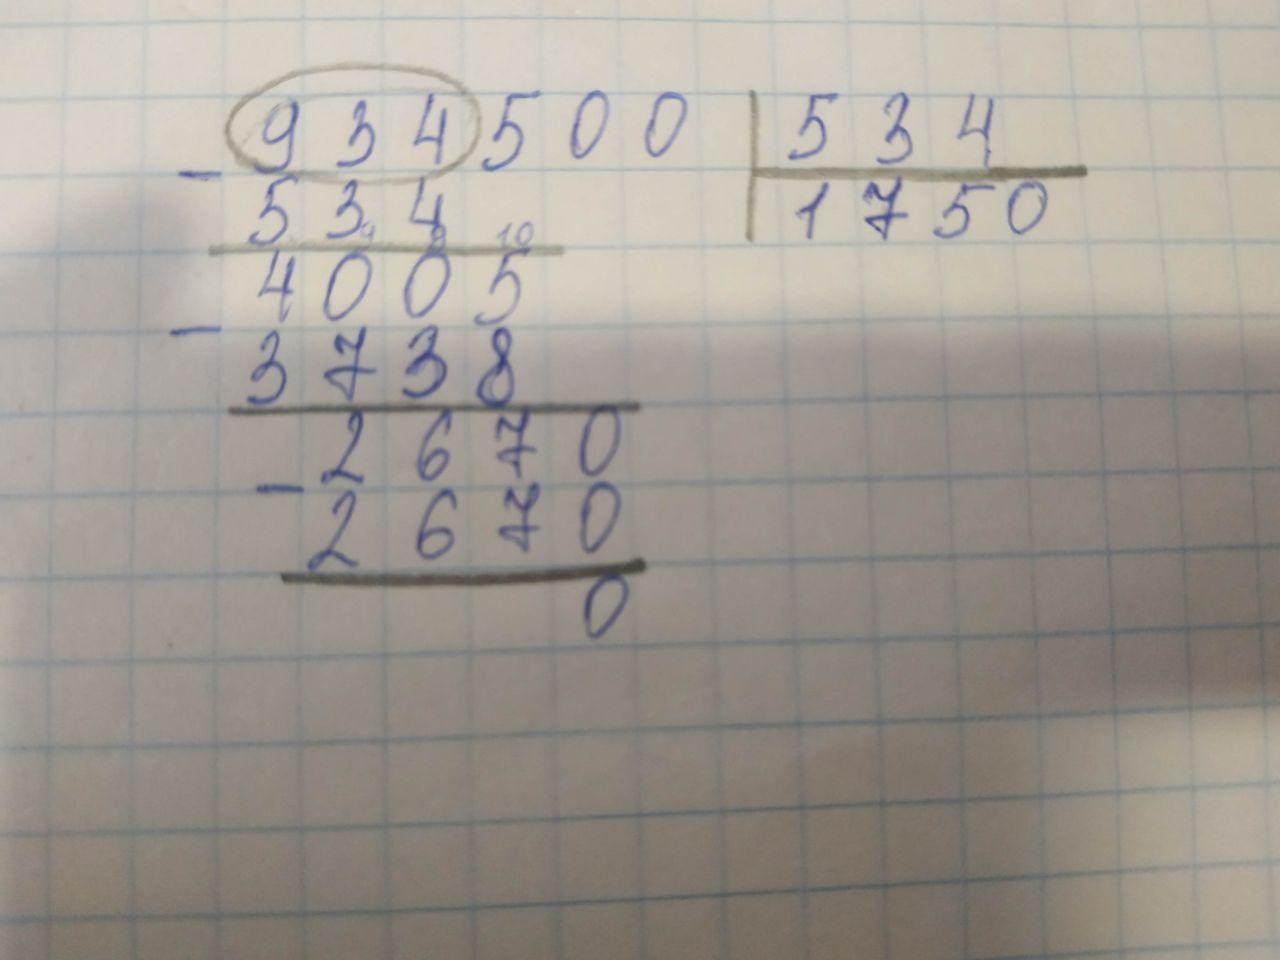 934500 | 534
- 534 1750
9 9 10
4005
- 3738
2670
- 2670
0